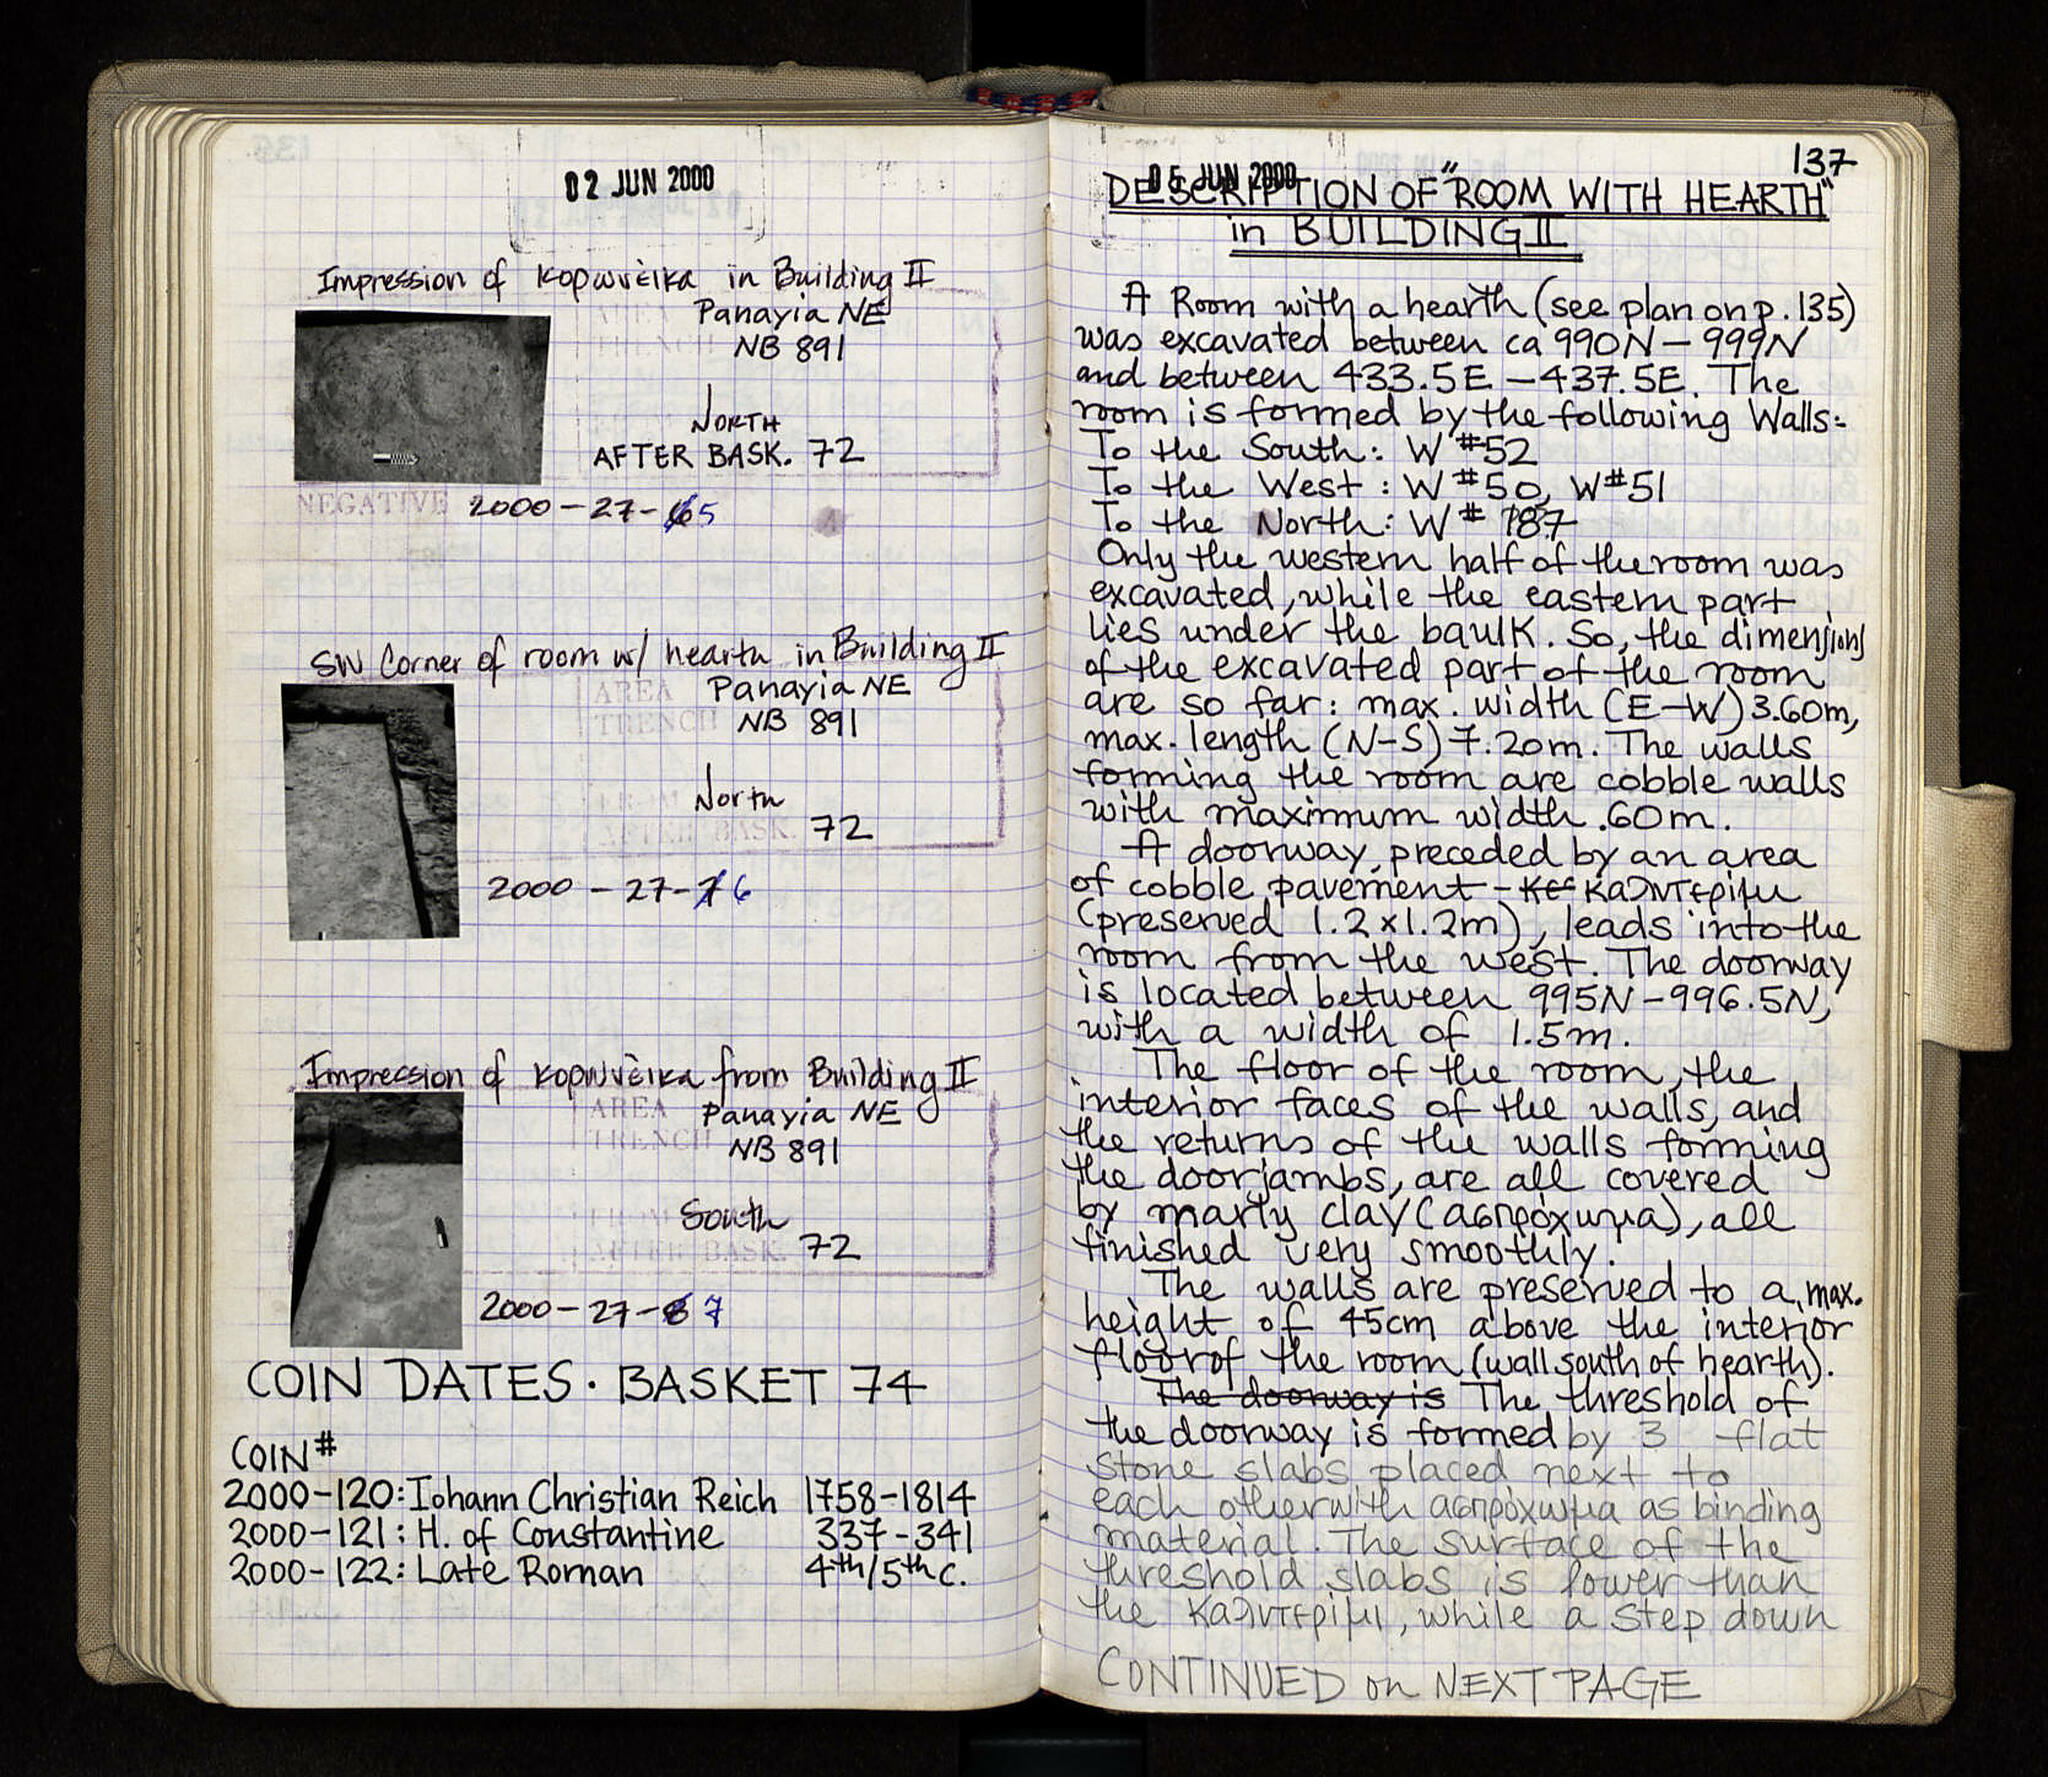 02 JUN 2000
Impression of κορωνέικα in Building II
Panayia NE
NB 891
NORTH
AFTER BASK. 72
NEGATIVE 2000-27-65
SW Corner of room w/ hearth in Building II
AREA Panayia NE
TRENCH NB 891
North
AFTER BASK. 72
2000-27-76
Impression of κορωνέικα from Building II
AREA Panayia NE
TRENCH NB 891
South
AFTER BASK. 72
2000-27-87
COIN DATES. BASKET 74
COIN#
2000-120: Iohann Christian Reich 1758-1814
2000-121: H. of Constantine 337-341
2000-122: Late Roman 4th/5th c.
137
05 JUN 2000
DESCRIPTION OF "ROOM WITH HEARTH"
in BUILDING II
A Room with a hearth (see plan on p. 135)
was excavated between ca 990N-999N
and between 433.5E-437.5E. The
room is formed by the following Walls:
To the South: W #52
To the West: W #50, W#51
To the North: W# 187
Only the western half of the room was
excavated, while the eastern part
lies under the baulk. So, the dimensions
of the excavated part of the room
are so far: max. width (E-W) 3.60m,
max. length (N-S) 7.20m. The walls
forming the room are cobble walls
with maximum width .60m.
A doorway, preceded by an area
of cobble pavement - κες καλντερίμι
(preserved 1.2x1.2m), leads into the
room from the west. The doorway
is located between 995N-996.5N,
with a width of 1.5m.
The floor of the room, the
interior faces of the walls, and
the returns of the walls forming
the doorjambs, are all covered
by marly clay (ασπρόχωμα), all
finished very smoothly.
The walls are preserved to a max.
height of 45cm above the interior
floor of the room (wall south of hearth).
The doorway is The threshold of
the doorway is formed by 3 flat
stone slabs placed next to
each other with ασπρόχωμα as binding
material. The surface of the
threshold slabs is lower than
the καλντερίμι, while a step down
CONTINUED on NEXT PAGE